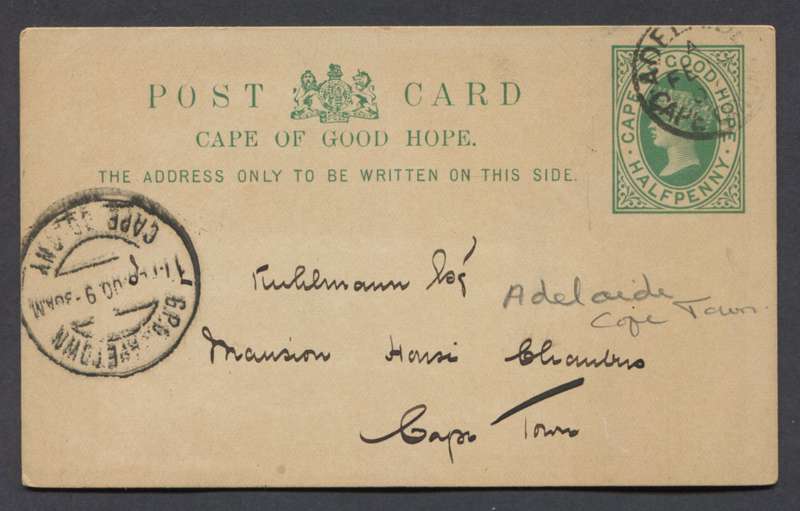 POST CARD
CAPE OF GOOD HOPE.
THE ADDRESS ONLY TO BE WRITTEN ON THIS SIDE.
CAPE · OF · GOOD · HOPE · HALFPENNY ·
ADELAIDE
A
FE
CAPE
CAPE COLONY
9-30AM
G.P.O. CAPETOWN
Kuhlmann Esq
Mansion House Chambers
Cape Town
Adelaide
Cape Town